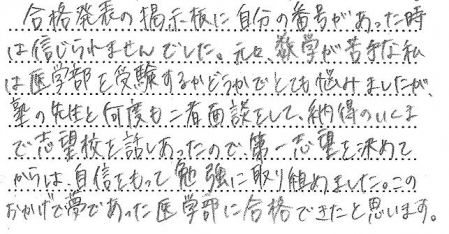 合格発表の掲示板に自分の番号があった時
は信じられませんでした。元々、数学が苦手な私
は医学部を受験するかどうかでとても悩みましたが、
塾の先生と何度も二者面談をして、納得のいくま
で志望校を話しあったので、第一志望を決めて
からは、自信をもって勉強に取り組めました。この
おかげで夢であった医学部に合格できたと思います。